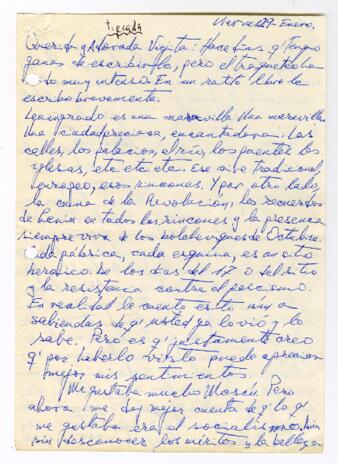 tienada
Viernes 29 - Enero.
Querida y Adorada Viejita: Hace días q' tengo
ganas de escribirle, pero el trajineo ha
sido muy intenso. En un ratito libre le
escribo brevemente.
Leningrado es una maravilla. Una maravilla
una ciudad preciosa, encantadora. Las
calles, los palacios, el río, los puentes, las
iglesias, etc etc etc. Ese aire tradicional,
europeo, esos rincones. Y por otro lado,
la cuna de la Revolución, los recuerdos
de Lenin en todos los rincones y la presencia
siempre viva de los bolcheviques de Octubre.
Cada fábrica, cada esquina, es un sitio
heroico. De los días del 17 o del sitio
y la resistencia contra el fascismo.
En realidad le cuento esto aún a
sabiendas de q' usted ya lo vió y lo
sabe. Pero es q' justamente creo
q' por haberlo visto puede apreciar
mejor mis sentimientos.
Me gustaba mucho Moscú. Pero
ahora me doy mejor cuenta de q' lo q'
me gustaba era el socialismo. Aún
sin desconocer los méritos y la belleza